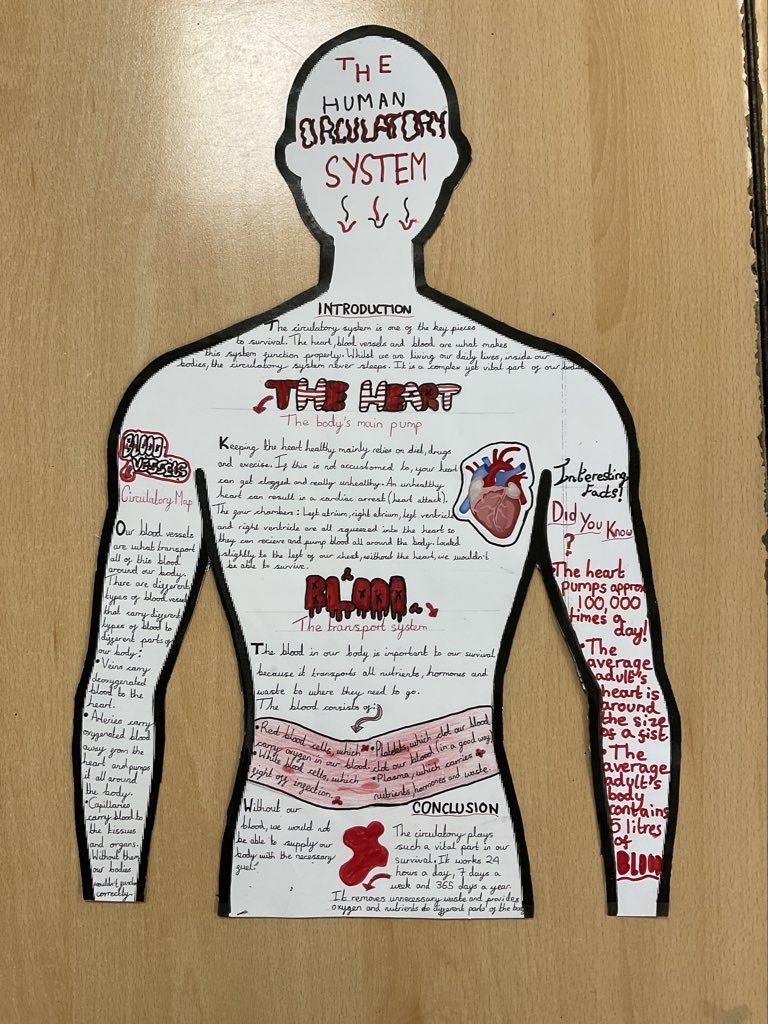 THE
HUMAN
CIRCULATORY
SYSTEM
INTRODUCTION
The circulatory system is one of the key pieces
to survival. The heart, blood vessels and blood are what makes
this system function properly. Whilst we are living our daily lives, inside our
bodies, the circulatory system never sleeps. It is a complex yet vital part of our bodies
THE HEART
The body's main pump
Keeping the heart healthy mainly relies on diet, drugs
and exercise. If this is not accustomed to, your heart
can get clogged and really unhealthy. An unhealthy
heart can result in a cardiac arrest (heart attack).
The four chambers: Left atrium, right atrium, left ventricle
and right ventricle are all squeezed into the heart so
they can recieve and pump blood all around the body. Located
slightly to the left of our chest, without the heart, we wouldn't
be able to survive.
BLOOD
VESSELS
Circulatory Map
Our blood vessels
are what transport
all of this blood
around our body.
There are different
types of blood vessels
that carry different
types of blood to
different parts of
our body:
• Veins carry
deoxygenated
blood to the
heart.
• Arteries carry
oxygenated blood
away from the
heart and pumps
it all around
the body.
• Capillaries
carry blood to
the tissues
and organs.
Without them,
our bodies
wouldn't
correctly.
BLOOD
The transport system
The blood in our body is important to our survival
because it transports all nutrients, hormones and
waste to where they need to go.
The blood consists of:
• Red blood cells, which
carry oxygen in our blood.
• White blood cells, which
fight off infection.
• Platelets, which clot our blood
clot our blood (in a good way)
• Plasma, which carries
nutrients, hormones and waste.
Without our
blood, we would not
be able to supply our
body with the necessary
fuel.
CONCLUSION
The circulatory plays
such a vital part in our
survival. It works 24
hours a day, 7 days a
week and 365 days a year.
It removes unnecessary waste and provides
oxygen and nutrients to different parts of the body
Interesting
Facts!
Did You Know
?
• The heart
pumps approx
100,000
times a
day!
• The
average
adult's
heart is
around
the size
of a fist.
• The
average
adult's
body
contains
5 litres
of
BLOOD